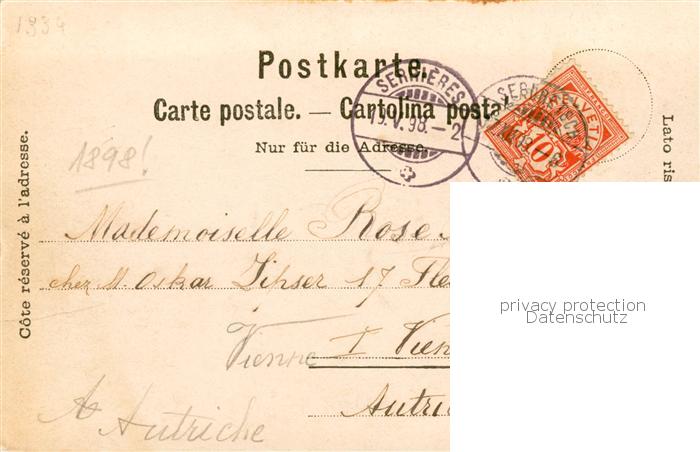 1334
Postkarte.
Carte postale. — Cartolina posta
Nur für die Adresse.
SERRIÈRES
13.V.98.-2
HELVETIA
10
1898!
Côte réservé à l'adresse.
Lato ris
Mademoiselle Rose
chez M. Oskar Lipser 17
Vienne I Vien
Autri
A Autriche
privacy protection
Datenschutz